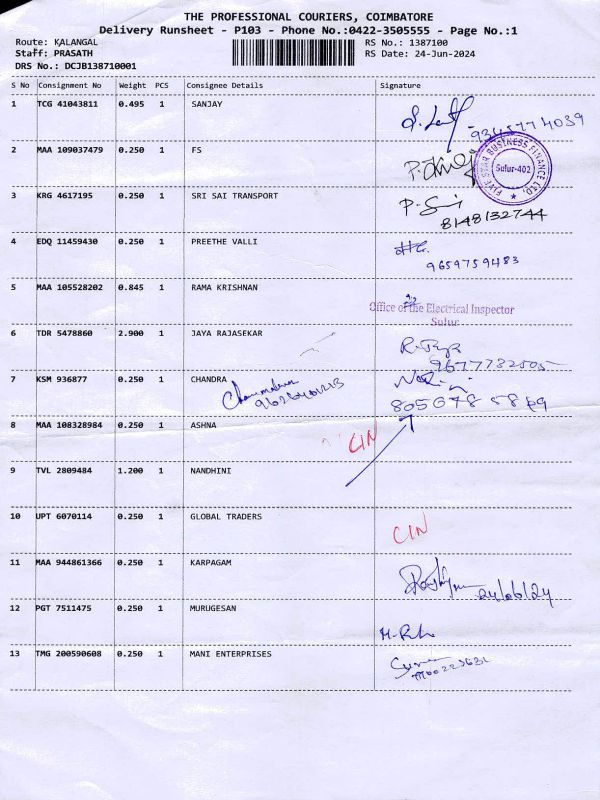 THE PROFESSIONAL COURIERS, COIMBATORE
Delivery Runsheet - P103 - Phone No.:0422-3505555 - Page No.:1
Route: KALANGAL
Staff: PRASATH
DRS No.: DCJB138710001
RS No.: 1387100
RS Date: 24-Jun-2024
S No Consignment No Weight PCS Consignee Details Signature
1 TCG 41043811 0.495 1 SANJAY
2 MAA 109037479 0.250 1 FS
FIVE STAR BUSINESS FINANCE LTD.
Sulur-402
3 KRG 4617195 0.250 1 SRI SAI TRANSPORT
8148132744
4 EDQ 11459430 0.250 1 PREETHE VALLI
9659759483
5 MAA 105528202 0.845 1 RAMA KRISHNAN
Office of the Electrical Inspector
Sulur
6 TDR 5478860 2.900 1 JAYA RAJASEKAR
7 KSM 936877 0.250 1 CHANDRA
8 MAA 108328984 0.250 1 ASHNA
CIN
9 TVL 2809484 1.200 1 NANDHINI
10 UPT 6070114 0.250 1 GLOBAL TRADERS
CIN
11 MAA 944861366 0.250 1 KARPAGAM
24/06/24
12 PGT 7511475 0.250 1 MURUGESAN
13 TMG 200590608 0.250 1 MANI ENTERPRISES